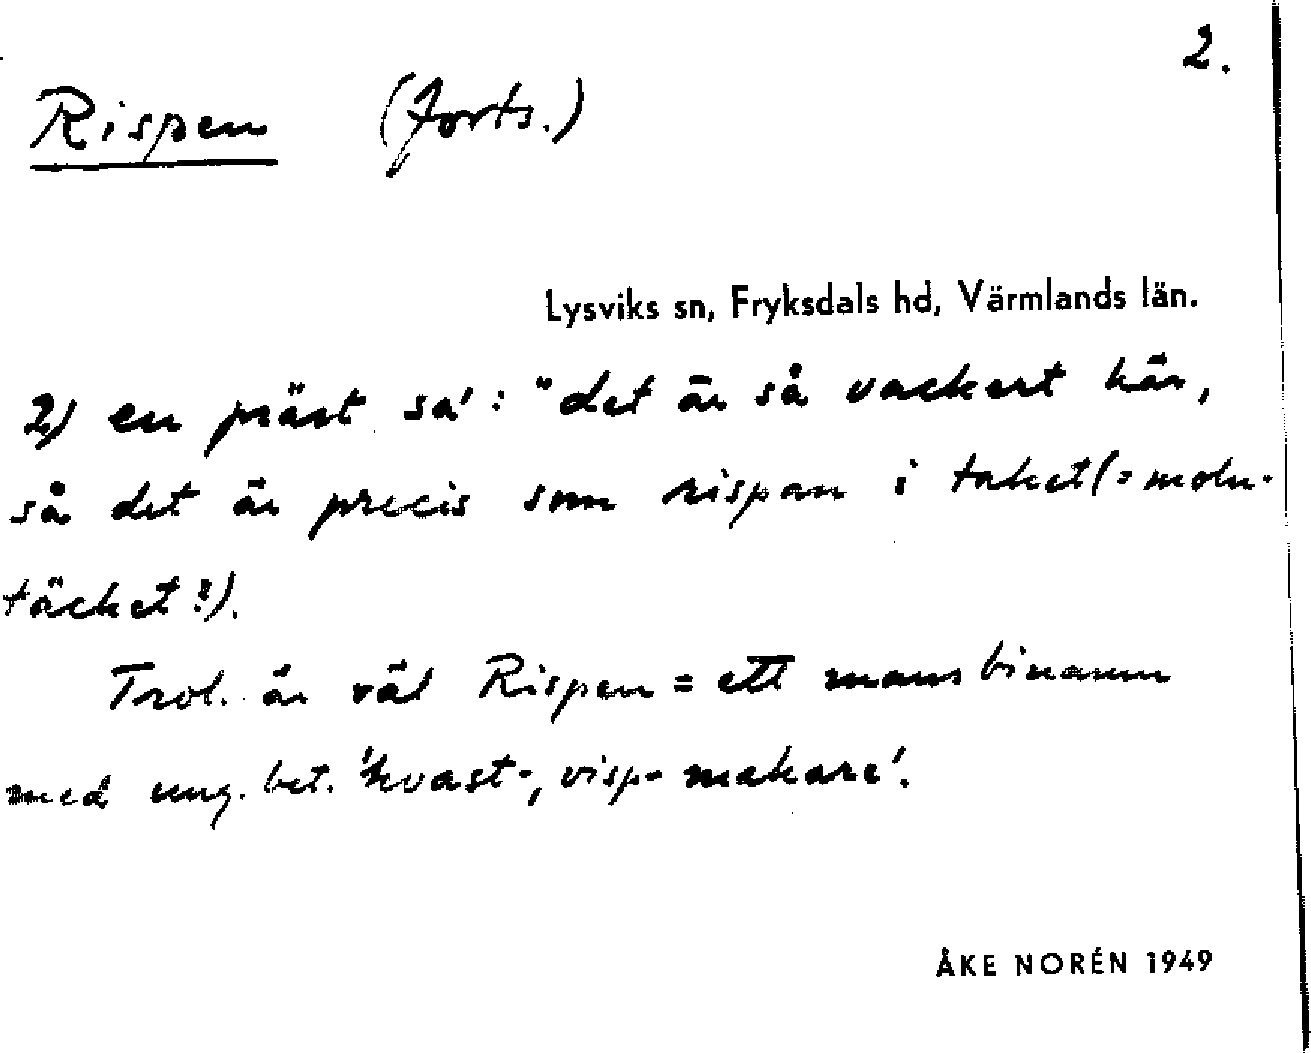 2.
Rispen (forts.)
Lysviks sn, Fryksdals hd, Värmlands län.
2) en präst sa': "det är så vackert här,
så det är precis som rispan i taket (= moln-
täcket?).
Trol. är väl Rispen = ett mansbinamn
med ung. bet. 'kvast-, visp-makare'.
ÅKE NORÉN 1949